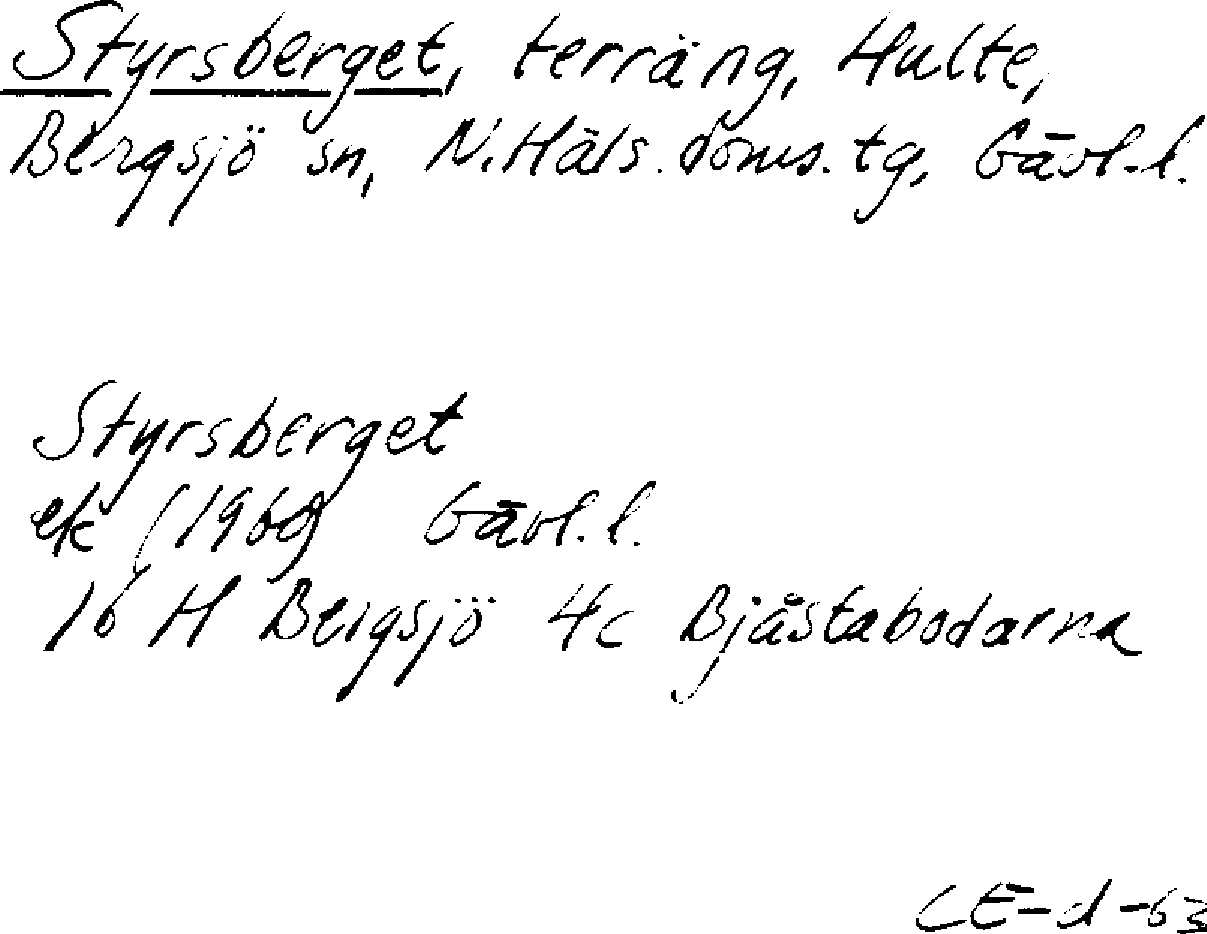 Styrsberget, terräng, Hulte,
Bergsjö sn, N. Häls. doms. tg, Gävl. l.
Styrsberget
ek (1960) Gävl. l.
16 H Bergsjö 4c Bjåstabodarna
CE-d-63